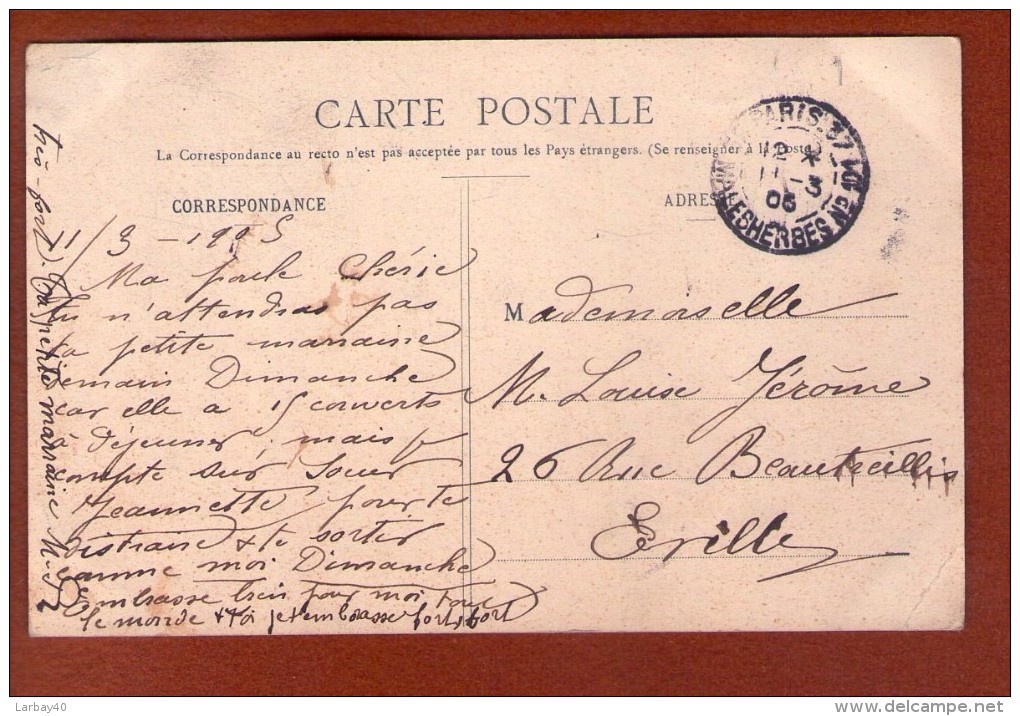 CARTE POSTALE
La Correspondance au recto n'est pas acceptée par tous les Pays étrangers. (Se renseigner à la Poste.)
CORRESPONDANCE
ADRESSE
PARIS. 37
12 *
11 - 3
05
MALESHERBES
11/3 - 1905
Ma poule Chérie
tu n'attendras pas
ta petite marraine
demain Dimanche
car elle a 15 couverts
à Déjeuner mais
compte sur Soeur
Jeannette pour te
distraire & te sorter
comme moi Dimanche
Embrasse bien pour moi tout
le monde & toi je t'embrasse fort, fort
très-fort, Ta petite marraine
Mademoiselle
M. Louise Jérôme
26 Rue Beautreillis
E. Ville
Larbay40